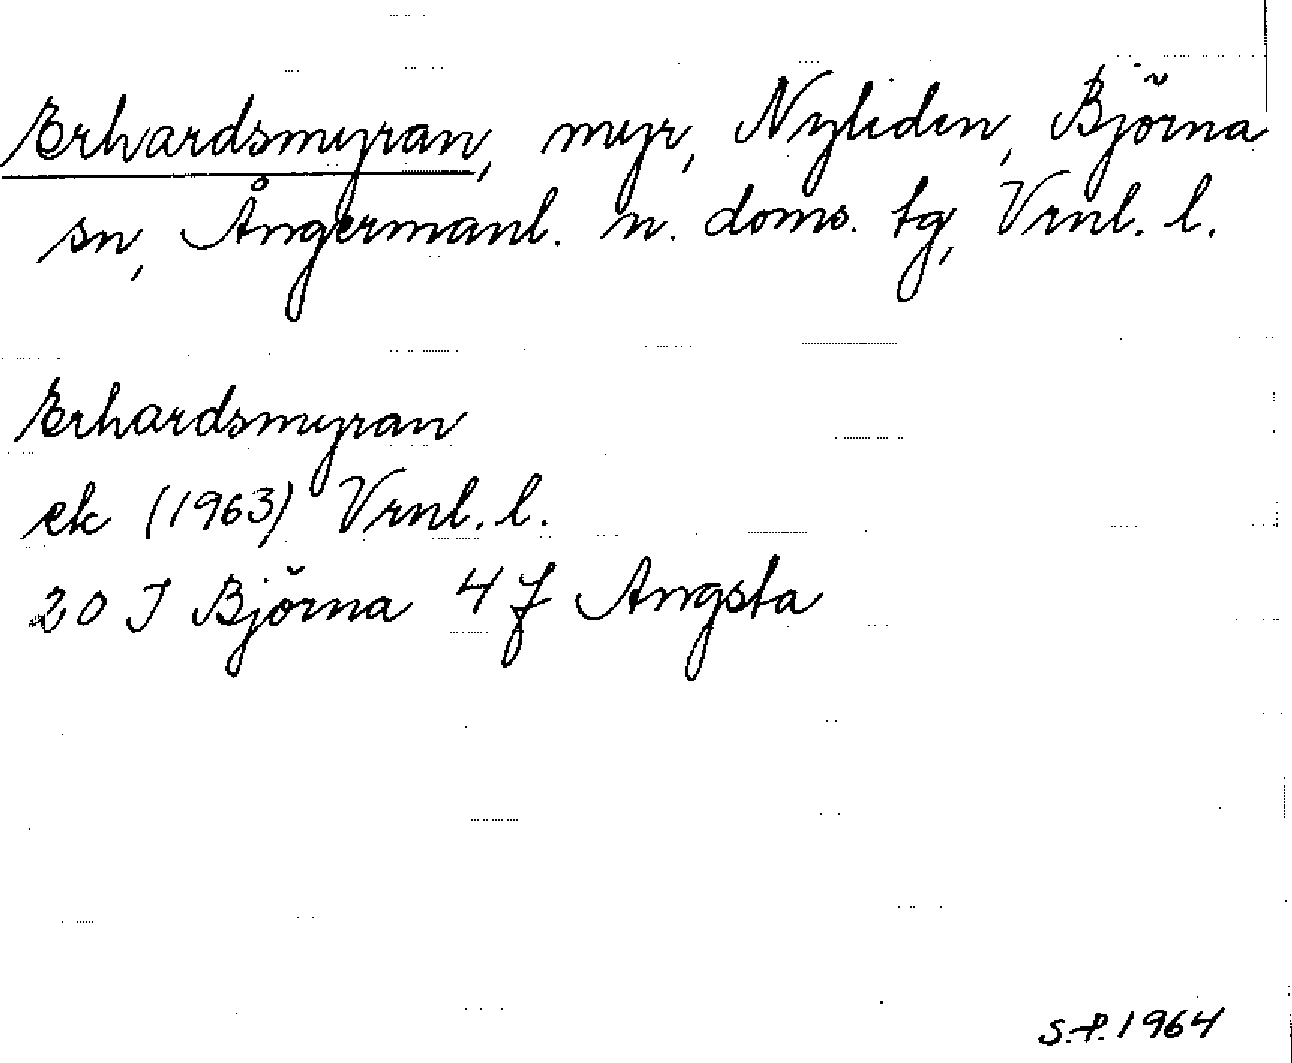 Erhardsmyran, myr, Nyliden, Björna
sn, Ångermanl. n. doms. tg, Vrnl. l.
Erhardsmyran
ek (1963) Vrnl. l.
20 I Björna 4 f Angsta
S.P. 1964